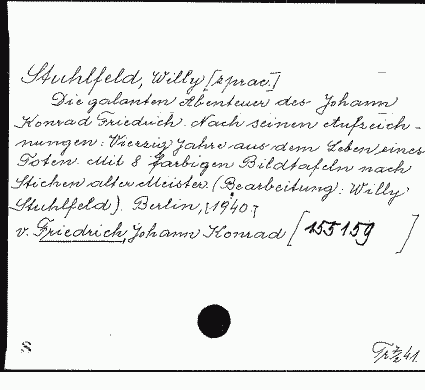 Stuhlfeld, Willy [zprac.]
Die galanten Abenteuer des Johann
Konrad Friedrich. Nach seinen Aufzeich-
nungen: Vierzig Jahre aus dem Leben eines
Toten. Mit 8 farbigen Bildtafeln nach
Stichen alter Meister. (Bearbeitung: Willy
Stuhlfeld). Berlin, [1940.]
v. Friedrich, Johann Konrad [155159]
S